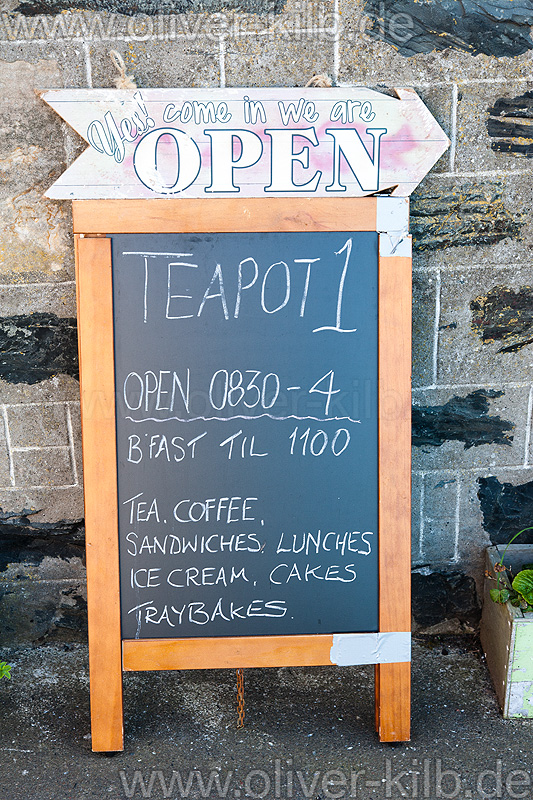 www.oliver-kilb.de
Yes! come in we are
OPEN
TEAPOT 1
OPEN 0830-4
B'FAST TIL 1100
TEA, COFFEE,
SANDWICHES, LUNCHES
ICE CREAM, CAKES
TRAYBAKES.
www.oliver-kilb.de
www.oliver-kilb.de